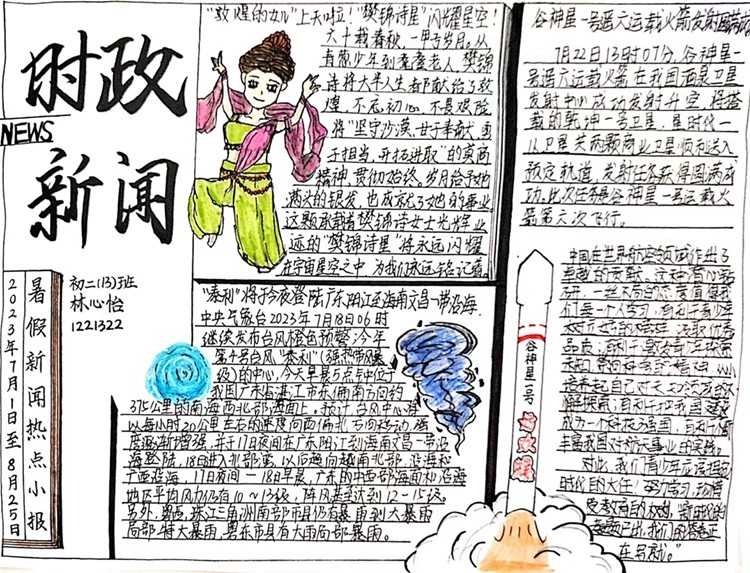 时政
NEWS
新闻
2023年7月1日至8月25日
暑假新闻热点小报
初二(13)班
林心怡
1221322
"敦煌的女儿"上天啦！"樊锦诗星"闪耀星空！
六十载春秋，一甲子岁月。从
青葱少年到耄耋老人，樊锦
诗将大半人生都献给了敦
煌，不忘初心，不畏艰险
将"坚守沙漠，甘于奉献，勇
于担当，开拓进取"的莫高
精神贯彻始终。岁月给予她
满头的银发，也成就了她的事业
这颗承载着樊锦诗女士光辉业
迹的"樊锦诗星"将永远闪耀
在宇宙星空之中，为我们永远铭记着。
"泰利"将于今夜登陆广东阳江至海南文昌一带沿海.
中央气象台2023年7月18日06时
继续发布台风橙色预警：今年
第4号台风"泰利"（强热带风暴
级）的中心，今天早晨5点钟位于
我国广东省湛江市东偏南方向约
375公里的南海西北部海面上。预计，台风中心将
以每小时20公里左右的速度向西偏北方向移动，强
度逐渐增强，并于17日夜间在广东阳江到海南文昌一带沿
海登陆，18日进入北部湾，以后趋向越南北部沿海和
广西沿海，17日夜间—18日早晨，广东的中西部海面和沿海
地区平均风力仍有10～13级，阵风甚至达到12—15级。
另外，粤西，珠江三角洲南部市县仍有暴雨到大暴雨
局部特大暴雨，粤东市县有大雨局部暴雨。
谷神星一号遥六运载火箭发射圆满成功
7月22日13时07分，谷神星一
号遥六运载火箭在我国酒泉卫星
发射中心成功发射升空，将搭
载的乾坤一号卫星、星时代—
16卫星共两颗商业卫星顺利送入
预定轨道，发射任务获得圆满成
功。此次任务是谷神星一号运载火
箭第六次飞行。
中国在世界航空领域作出了
卓越的贡献，这种
研，一丝不苟的态度值得我
们每一个人学习，有利于青少年
品质；有利于激发青少年探索
培养起自己对
解探索；有利于把我国建设
成为一个科技强国，有利于
丰富我国对航天事业的实践。
对此，我们青少年应该担起
时代的大任！努力学习，珍惜
受教育的权利，
我们的答卷正
在书就。"
谷神星一号